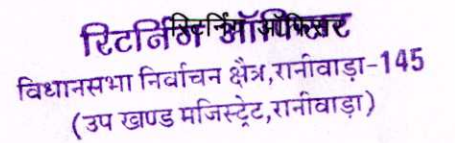 रिटर्निंग ऑफिसर
रिटर्निंग ऑफिसर
विधानसभा निर्वाचन क्षैत्र,रानीवाड़ा-145
(उप खण्ड मजिस्ट्रेट,रानीवाड़ा)